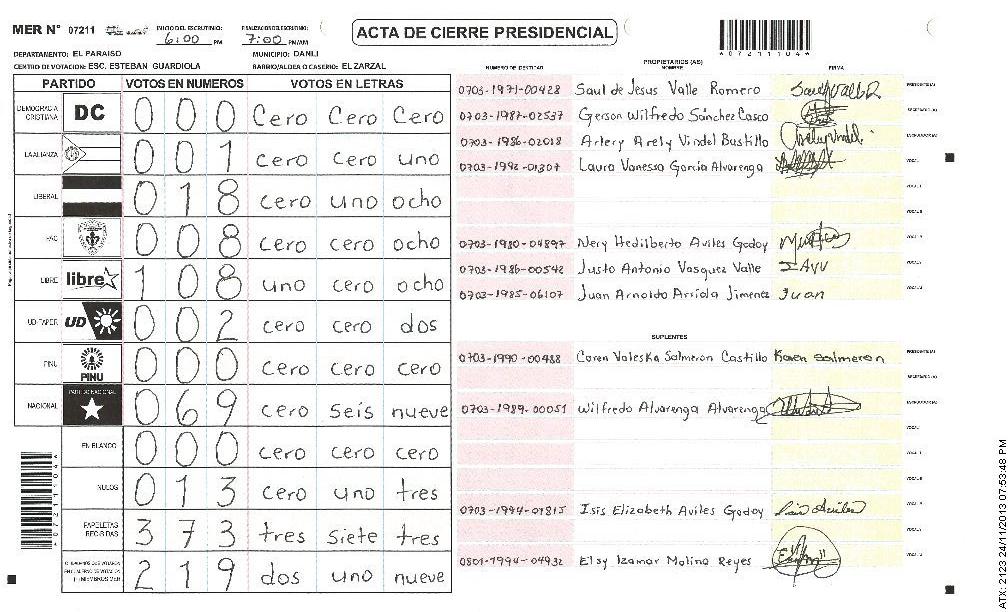 MER N° 07211
INICIO DEL ESCRUTINIO: 6:00 PM
FINALIZACION DEL ESCRUTINIO: 7:00 PM/AM
ACTA DE CIERRE PRESIDENCIAL
*07211104*
DEPARTAMENTO: EL PARAISO MUNICIPIO: DANLI
CENTRO DE VOTACION: ESC. ESTEBAN GUARDIOLA BARRIO/ALDEA O CASERIO: EL ZARZAL
PARTIDO VOTOS EN NUMEROS VOTOS EN LETRAS
DEMOCRACIA CRISTIANA DC 0 0 0 Cero Cero Cero
LA ALIANZA 0 0 1 cero cero uno
LIBERAL 0 1 8 cero uno ocho
PAC 0 0 8 cero cero ocho
LIBRE libre 1 0 8 uno cero ocho
UD-FAPER UD 0 0 2 cero cero dos
PINU PINU 0 0 0 cero cero cero
NACIONAL PARTIDO NACIONAL 0 6 9 cero seis nueve
EN BLANCO 0 0 0 cero cero cero
NULOS 0 1 3 cero uno tres
PAPELETAS RECIBIDAS 3 7 3 tres siete tres
2 1 9 dos uno nueve
*07211104*
PROPIETARIOS (AS)
NUMERO DE IDENTIDAD NOMBRE FIRMA
0703-1971-00428 Saul de Jesus Valle Romero PRESIDENTE(A)
0703-1987-02537 Gerson Wilfredo Sánchez Casco SECRETARIO (A)
0703-1986-02018 Artery Arely Vindel Bustillo ESCRUTADOR (A)
0703-1992-01307 Laura Vanessa García Alvarenga VOCAL I
VOCAL II
VOCAL III
0703-1980-04897 Nery Hedilberto Aviles Godoy
0703-1986-00542 Justo Antonio Vasquez Valle
0703-1985-06107 Juan Arnoldo Arriola Jimenez Juan
SUPLENTES
0703-1990-00488 Caren Valeska Salmeron Castillo Karen Salmeron PRESIDENTE(A)
SECRETARIO (A)
0703-1989-00051 Wilfredo Alvarenga Alvarenga ESCRUTADOR (A)
0703-1994-01815 Isis Elizabeth Aviles Godoy
0801-1994-04932 Elsy Izamar Molina Reyes
ATX: 2123 24/11/2013 07:53:48 PM